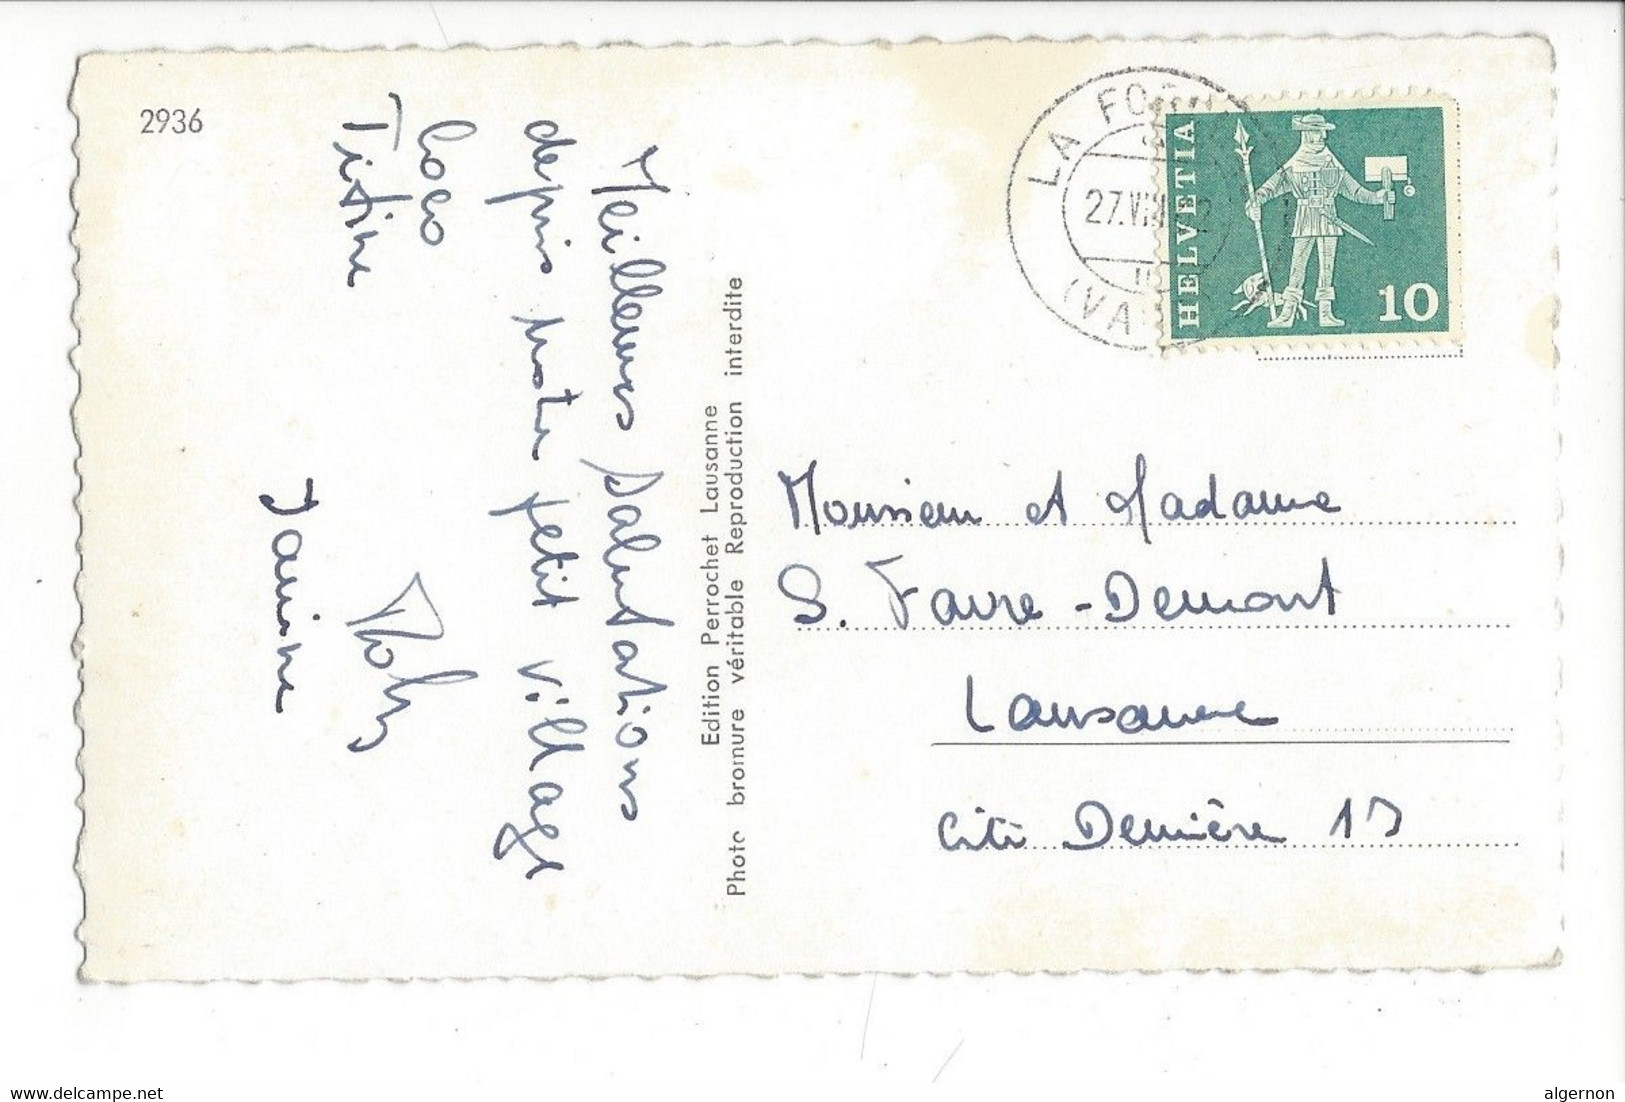 2936
Meilleures salutations
depuis notre petit village
Coco
Titine
Janine
Edition Perrochet Lausanne
Photo bromure véritable Reproduction interdite
LA FO
27.VI
(VA
HELVETIA
10
Monsieur et Madame
S. Favre-Demont
Lausanne
Cité Derrière 13
algernon